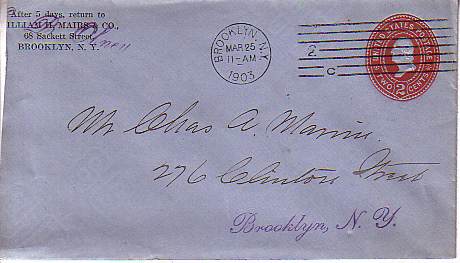 After 5 days, return to
WILLIAM H. MAIRS & CO.,
68 Sackett Street,
BROOKLYN, N. Y.
BROOKLYN, N.Y.
MAR 25
11-AM
1903
2
C
UNITED STATES POSTAGE
TWO 2 CENTS
Mr Chas A.
276 Clinton Street
Brooklyn, N. Y.